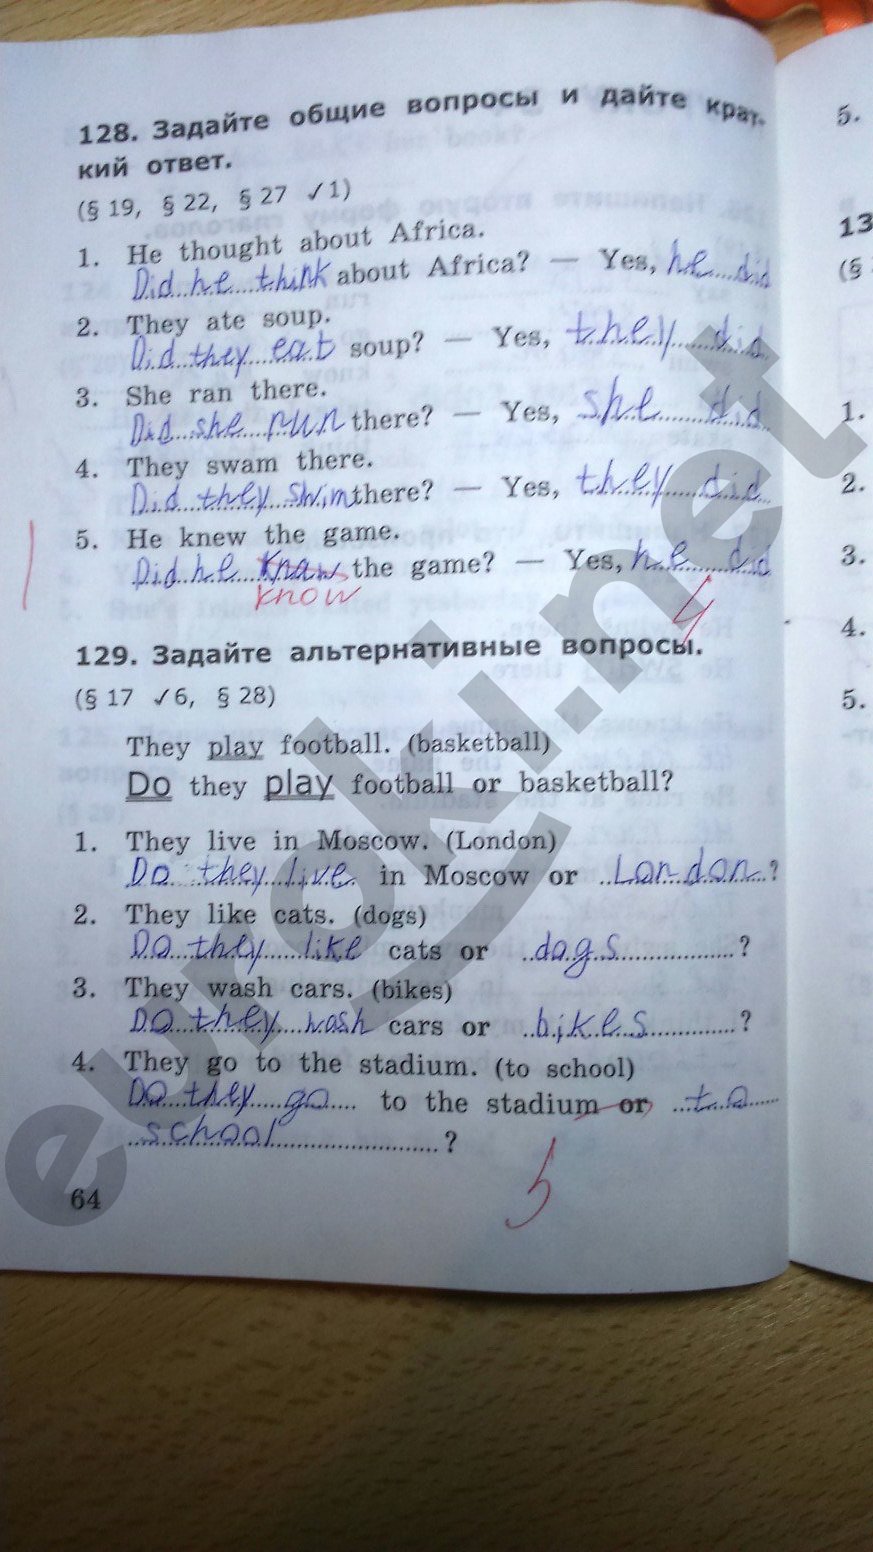 128. Задайте общие вопросы и дайте крат-
кий ответ.
(§ 19, § 22, § 27 ✓1)
1. He thought about Africa.
Did he think about Africa? — Yes, he did
2. They ate soup.
Did they eat soup? — Yes, they did
3. She ran there.
Did she run there? — Yes, she did
4. They swam there.
Did they swim there? — Yes, they did
5. He knew the game.
Did he knaw the game? — Yes, he did
know
4
129. Задайте альтернативные вопросы.
(§ 17 ✓6, § 28)
They play football. (basketball)
Do they play football or basketball?
1. They live in Moscow. (London)
Do they live in Moscow or London?
2. They like cats. (dogs)
Do they like cats or dogs?
3. They wash cars. (bikes)
Do they wash cars or bikes?
4. They go to the stadium. (to school)
Do they go to the stadium or to
school?
5
64
5.
13
(§
1.
2.
3.
4.
5.
euroki.net